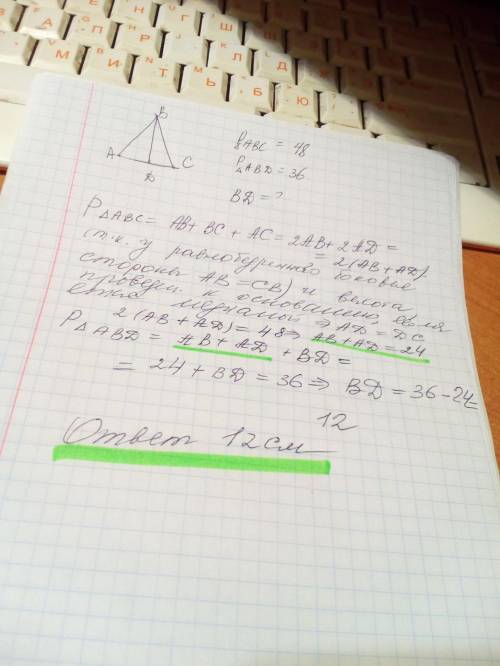 B
A
C
D
PАВС = 48
P△ABD = 36
BD = ?
P△ABC = AB + BC + AC = 2AB + 2AD =
= 2(AB + AD)
(т.к. у равнобедренного боковые
стороны AB = CB) и высота
проведен. к основанию, явля
ется медианой ⇒ AD = DC
2(AB + AD) = 48 ⇒ AB + AD = 24
P△ABD = AB + AD + BD =
= 24 + BD = 36 ⇒ BD = 36 - 24 =
12
Ответ 12 см